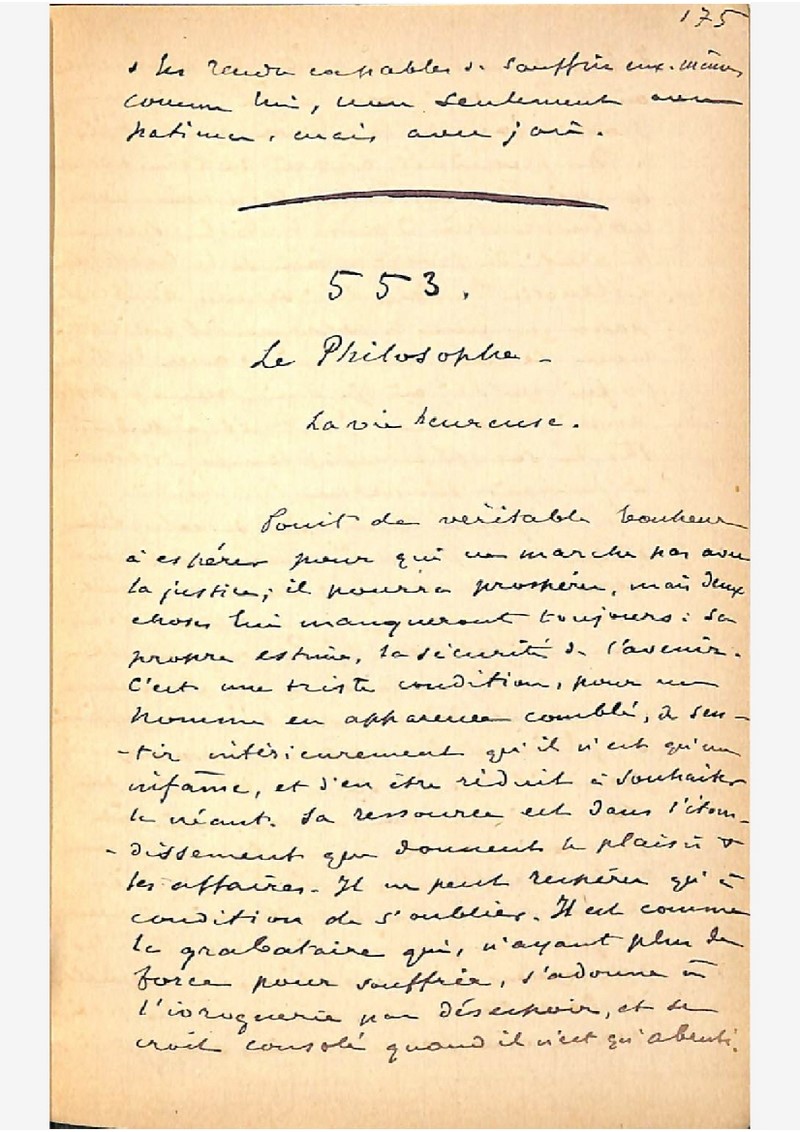 175
& les rendre capables de souffrir eux-mêmes
comme lui, non seulement avec
patience, mais avec joie.
553.
Le Philosophe -
La vie heureuse.
Point de véritable bonheur
à espérer pour qui ne marche pas avec
la justice; il pourra prospérer, mais deux
choses lui manqueront toujours: sa
propre estime, la sécurité de l'avenir.
C'est une triste condition, pour un
homme en apparence comblé, de sen-
-tir intérieurement qu'il n'est qu'un
infâme, et d'en être réduit à souhaiter
le néant. Sa ressource est dans l'étour-
-dissement que donnent le plaisir &
les affaires. Il ne peut respirer qu'à
condition de s'oublier. Il est comme
le grabataire qui, n'ayant plus de
force pour souffrir, s'adonne à
l'ivrognerie par désespoir, et se
croit consolé quand il n'est qu'abruti.